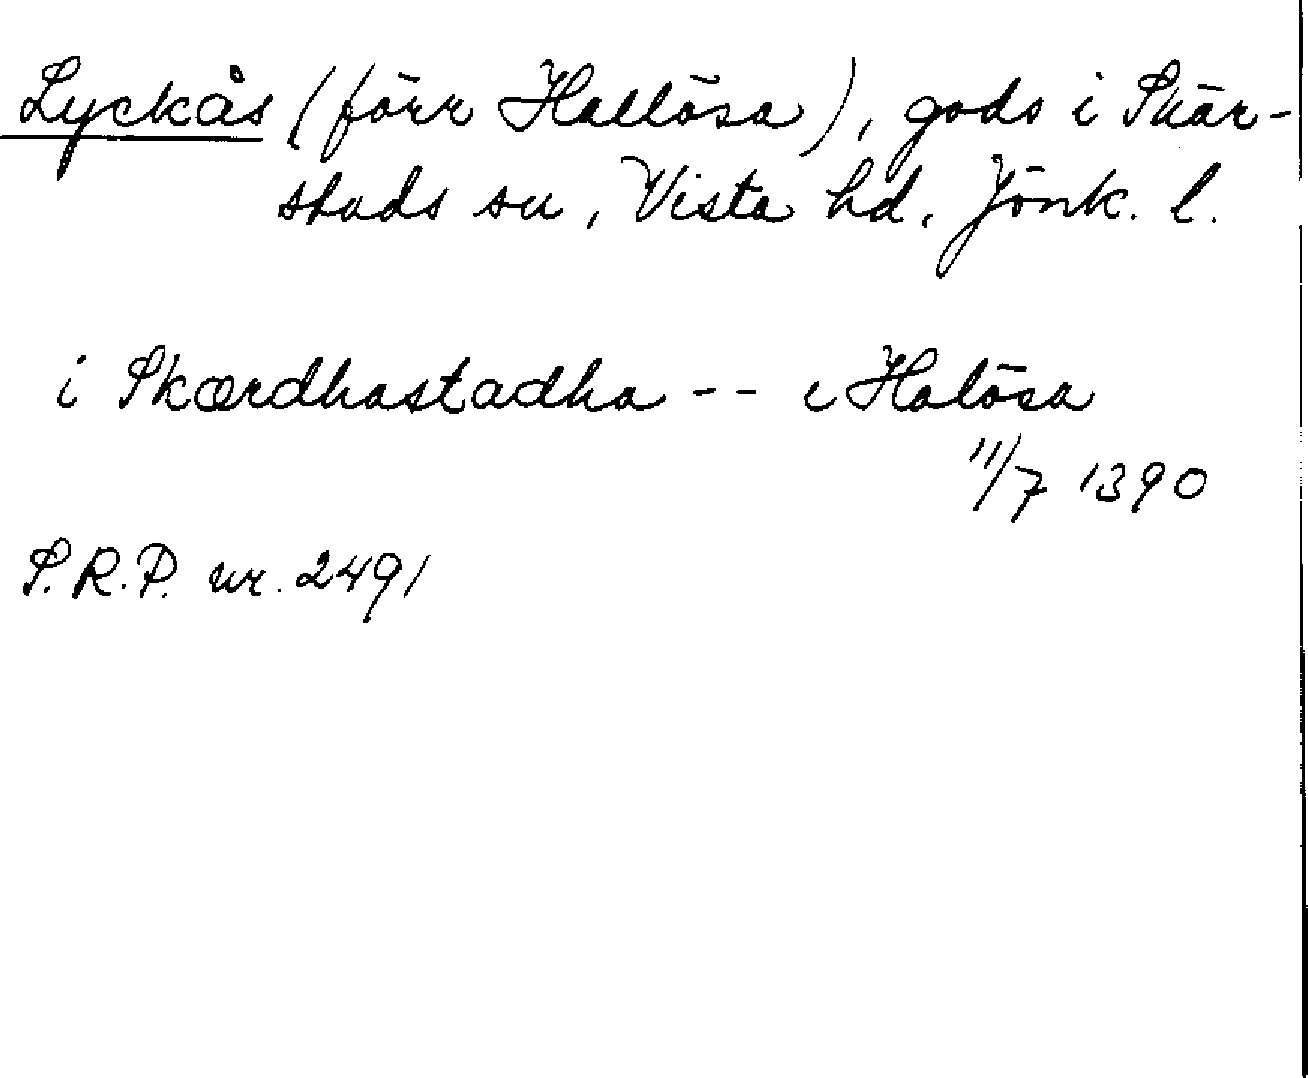 Lyckås (förr Hallösa), gods i Skär-
stads sn, Vista hd, Jönk. l.
i Skærdhastadha -- i Halösa
11/7 1390
S.R.P. nr. 2491